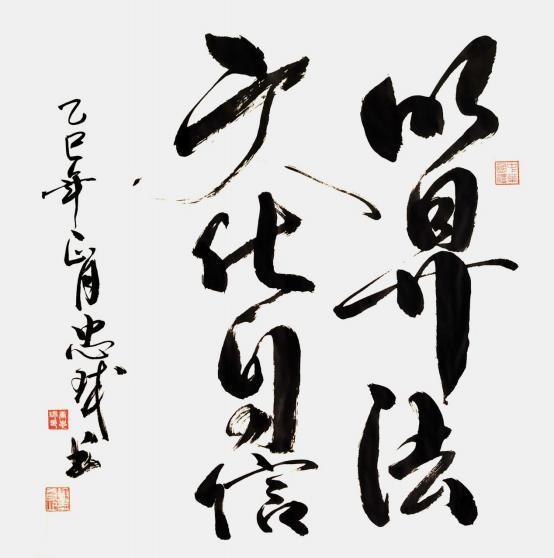 以算法
文化自信
乙巳年正月忠书